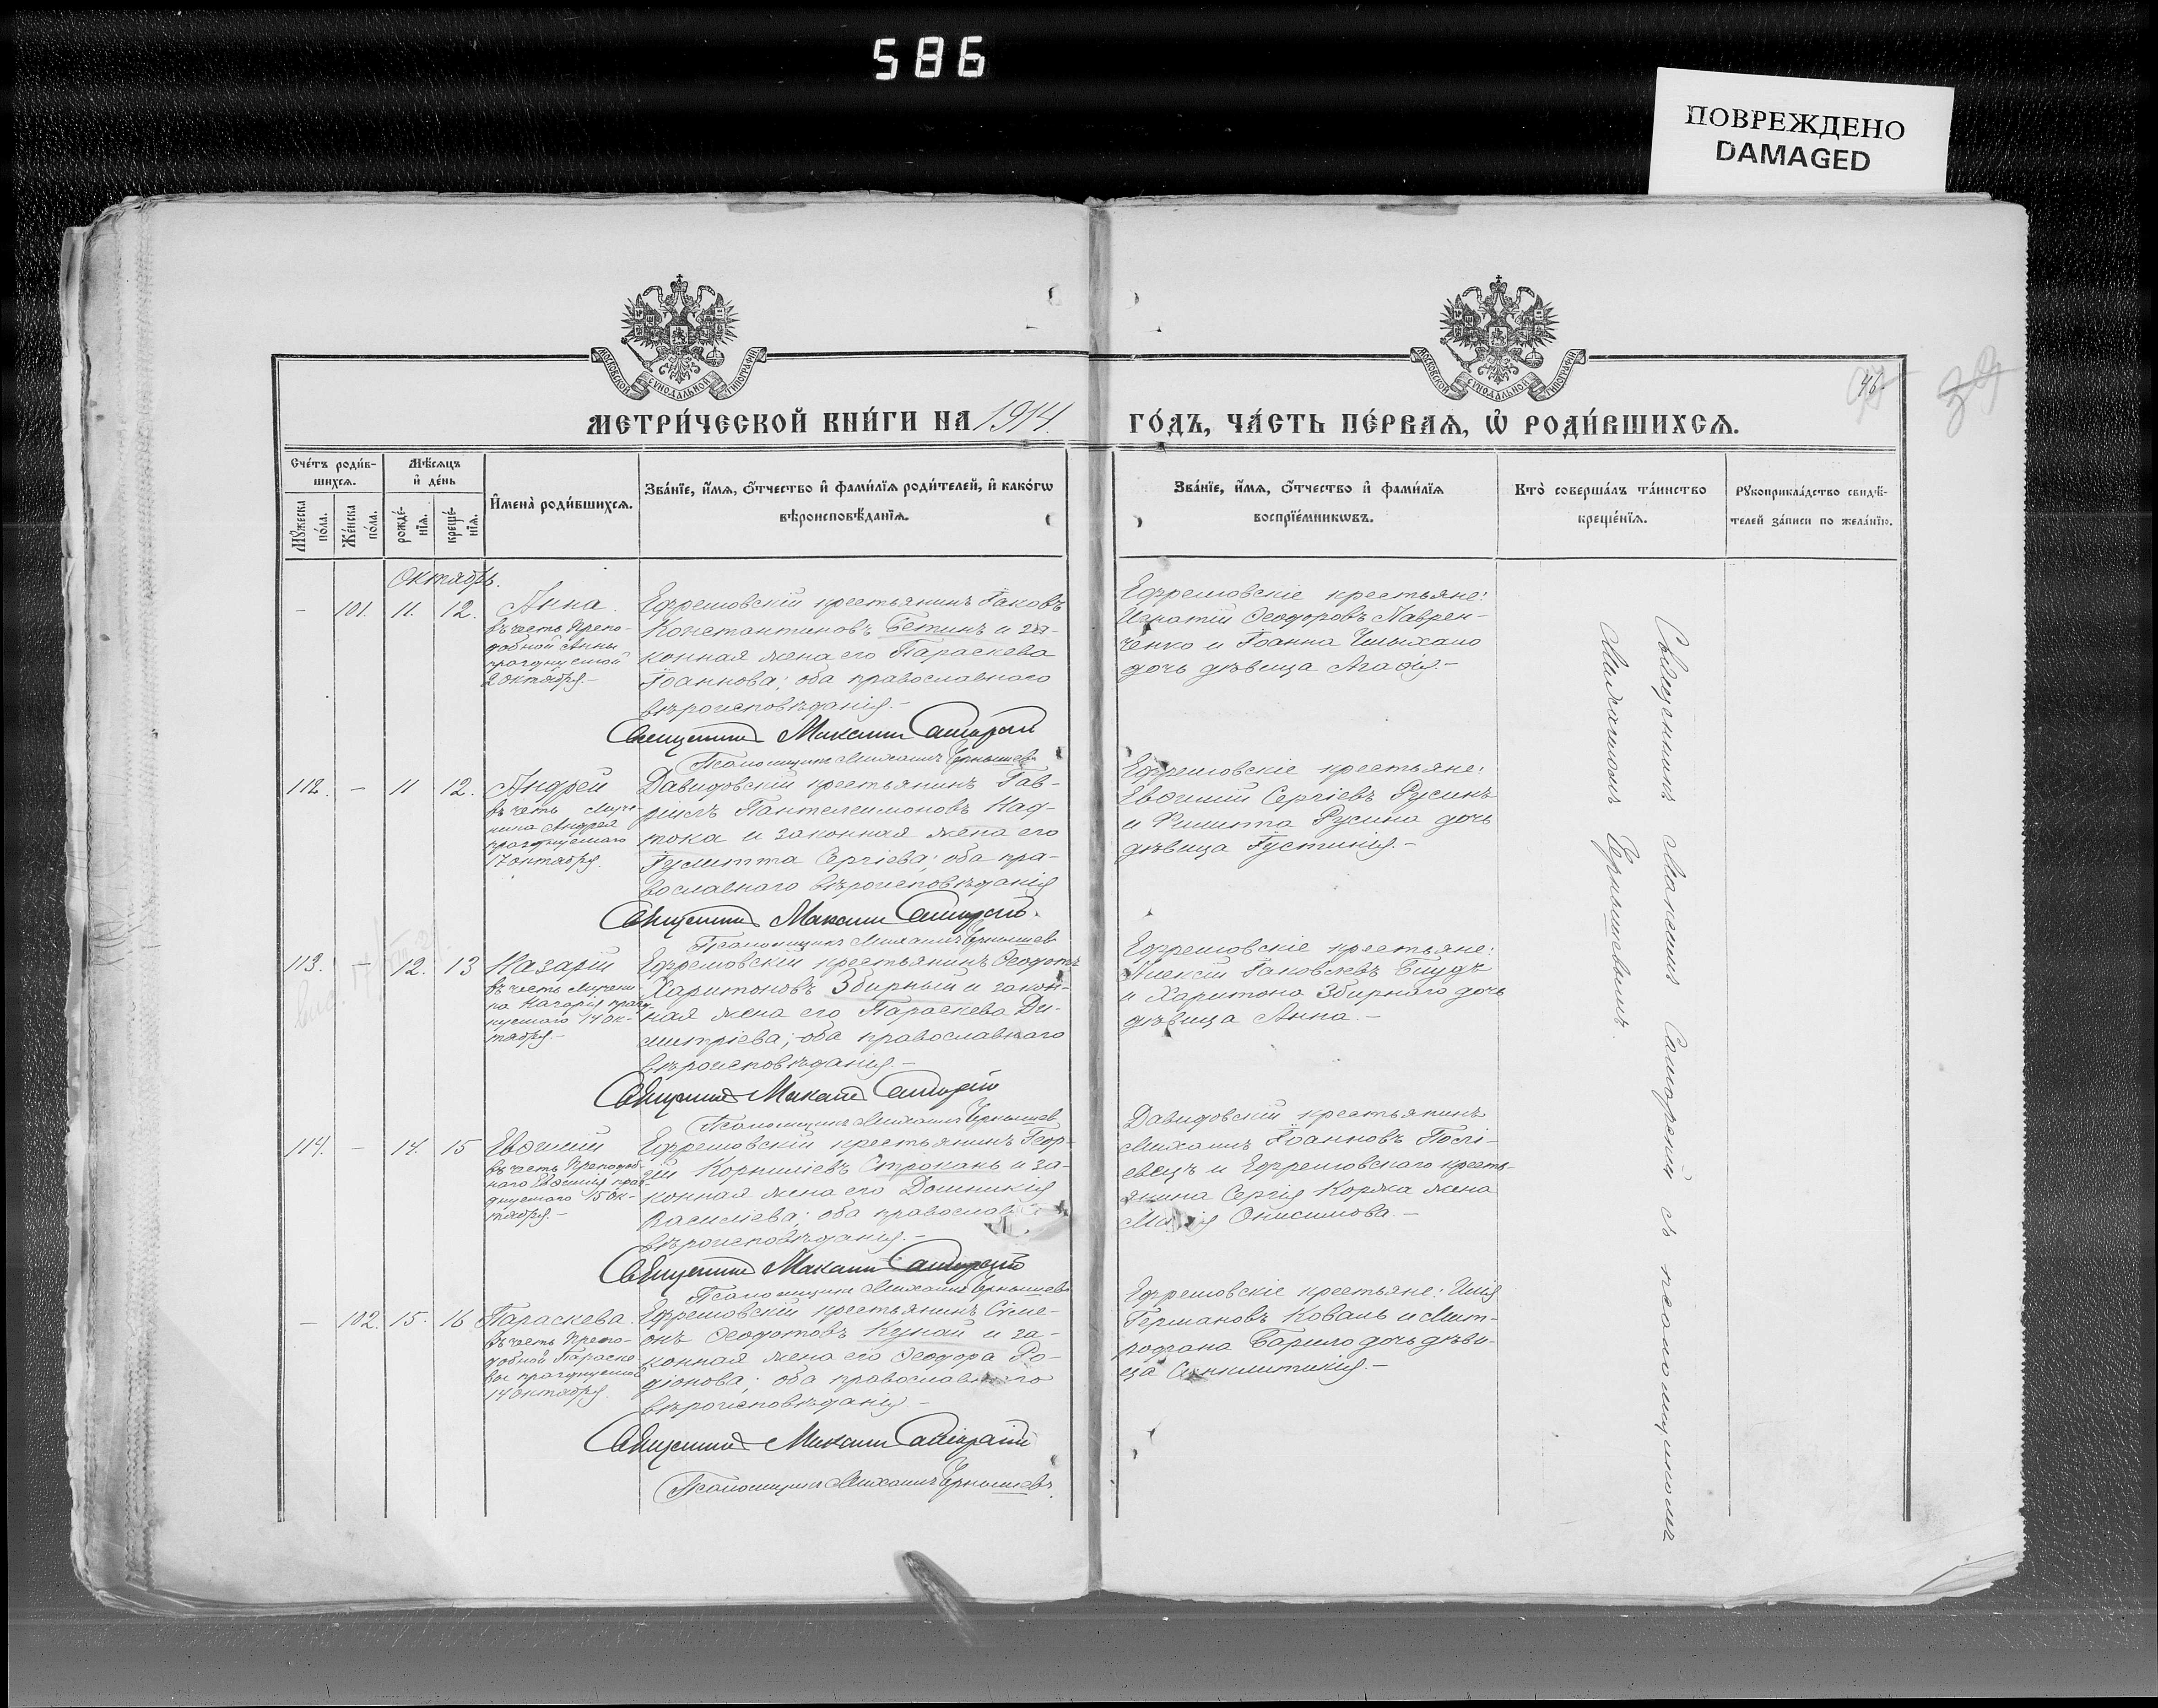 586
ПОВРЕЖДЕНО
DAMAGED
МОСКОВСКОЙ СѴНОДАЛЬНОЙ ТИПОГРАФІИ
МОСКОВСКОЙ СѴНОДАЛЬНОЙ ТИПОГРАФІИ
МЕТРИ́ЧЕСКОЙ КНИ́ГИ НА 1914.
ГО́ДЪ, ЧА́СТЬ ПЕ́РВАЯ, Ѽ РОДИ́ВШИХСЯ.
Сче́тъ роди́в-
шихся.
Мѣсяцъ
и҆ де́нь
Мꙋ́жеска
по́ла.
Же́нска
по́ла.
рожде́-
нїя.
креще́-
нїя.
И҆мена̀ роди́вшихся.
Зва́нїе, и҆́мя, ѻ҆́тчество и҆ фами́лїя роди́телей, и҆ како́гѡ
вѣроисповѣ́данїя.
Зва́нїе, и҆́мя, ѻ҆́тчество и҆ фами́лїя
воспрїе́мникѡвъ.
Кто̀ соверша́лъ та́инство
креще́нїя.
Рꙋкоприкла́дство свидѣ́-
телей за́писи по жела́нїю.
Октябрь.
- 101. 11. 12. Анна
въ честь Препо-
добной Анны
празднуемой
2 октября.-
Ефремовскій крестьянинъ Іаковъ
Константиновъ Бетинъ и за-
конная жена его Параскева
Іоаннова; оба православнаго
вѣроисповѣданія.-
Священникъ Максимъ Саморскій
Псаломщикъ Михаилъ Чернышевъ
Ефремовскіе крестьяне:
Игнатій Ѳеодоровъ Лаврен-
ченко и Іоанна
дочь дѣвица Агафія.-
112. - 11 12. Андрей
въ честь Муче-
ника Андрея
празднуемаго
17 октября.
Давидовскій крестьянинъ Гав-
ріилъ Пантелеимоновъ Над-
тока и законная жена его
Іулитта Сергіева; оба пра-
вославнаго вѣроисповѣданія
Священникъ Максимъ Саморскій.
Псаломщикъ Михаилъ Чернышев
Ефремовскіе крестьяне:
Евѳимій Сергіевъ Русинъ
и Русина дочь
дѣвица Іустинія.-
113. - 12. 13 Назарій
въ честь Мучени-
ка Назарія празд-
нуемаго 14 ок-
тября.-
Ефремовскій крестьянинъ Ѳеодотъ
Харитоновъ Збирный и закон-
ная жена его Параскева Ди-
митріева; оба православнаго
вѣроисповѣданія.-
Священникъ Максимъ Саморскій
Псаломщикъ Михаилъ Чернышев
Ефремовскіе крестьяне:
Алексій Іаковлевъ
и Харитона Збирнаго дочь
дѣвица Анна.-
114. - 14. 15 Евѳимій
въ честь Преподоб-
наго Евѳимія праз-
днуемаго 15 ок-
тября.-
Ефремовскій крестьянинъ Геор-
гій Корниліевъ Строкань и за-
конная жена его Домникія
Василіева; оба православ
вѣроисповѣданія.-
Священникъ Максимъ Саморскій
Псаломщикъ Михаилъ Чернышевъ
Давидовскій крестьянинъ
Михаилъ Іоанновъ Поспі-
евецъ и Ефремовскаго кресть-
янина Сергія Коржа жена
Марія Онисимова.-
- 102. 15. 16 Параскева
въ честь Препо-
добной Параске-
вы празднуемой
14 октября.
Ефремовскій крестьянинъ Симе-
онъ Ѳеодотовъ Кунай и за-
конная жена его Ѳеодора Ро-
діонова; оба православнаго
вѣроисповѣданія -
Священникъ Максимъ Саморскій
Псаломщикъ Михаилъ Чернышевъ.
Ефремовскіе крестьяне: Илія
Германовъ Коваль и Мит-
рофана Барило дочь дѣви-
ца Синклитикія.-
Священникъ Максимъ Саморскій съ псаломщикомъ
Михаиломъ Чернышевымъ.
46.
39